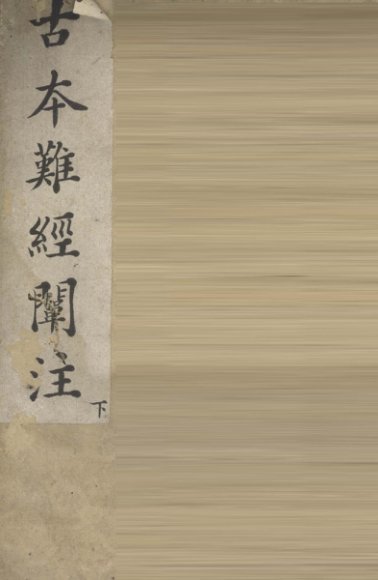 古本難經闡注
下